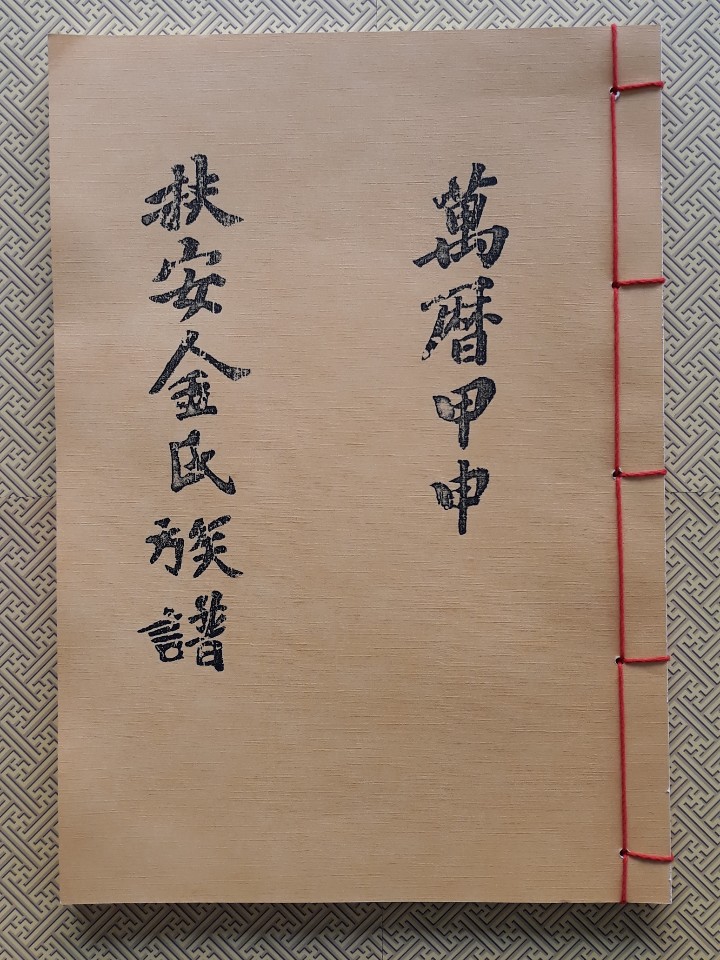 萬曆甲申
扶安金氏族譜